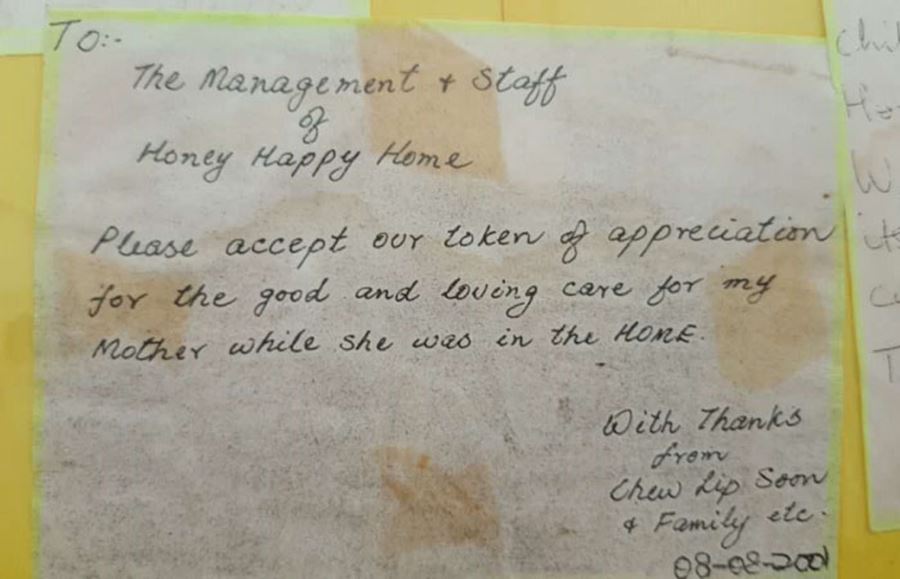 To:-
The Management & Staff
of
Honey Happy Home
Please accept our token of appreciation
for the good and loving care for my
Mother while she was in the HOME.
With Thanks
from
Chew Lip Soon
& Family etc.
08-08-2001